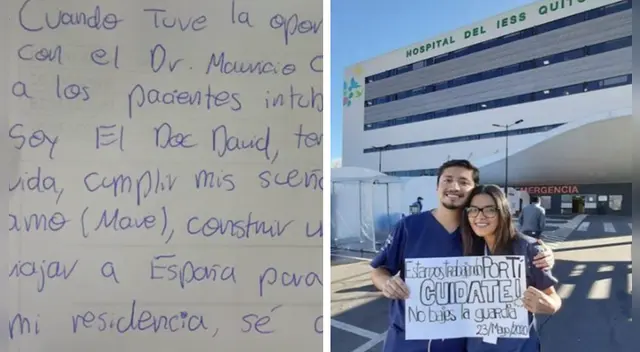 Cuando Tuve la opor
con el Dr. Mauricio
a los pacientes intub
Soy El Doc David, ten
vida, cumplir mis sueño
amo (Mave), construir u
viajar a España para
mi residencia, sé
HOSPITAL DEL IESS QUITO
EMERGENCIA
Estamos trabajando POR TI
CUIDATE!
No bajes la guardia
23/Mayo/2020